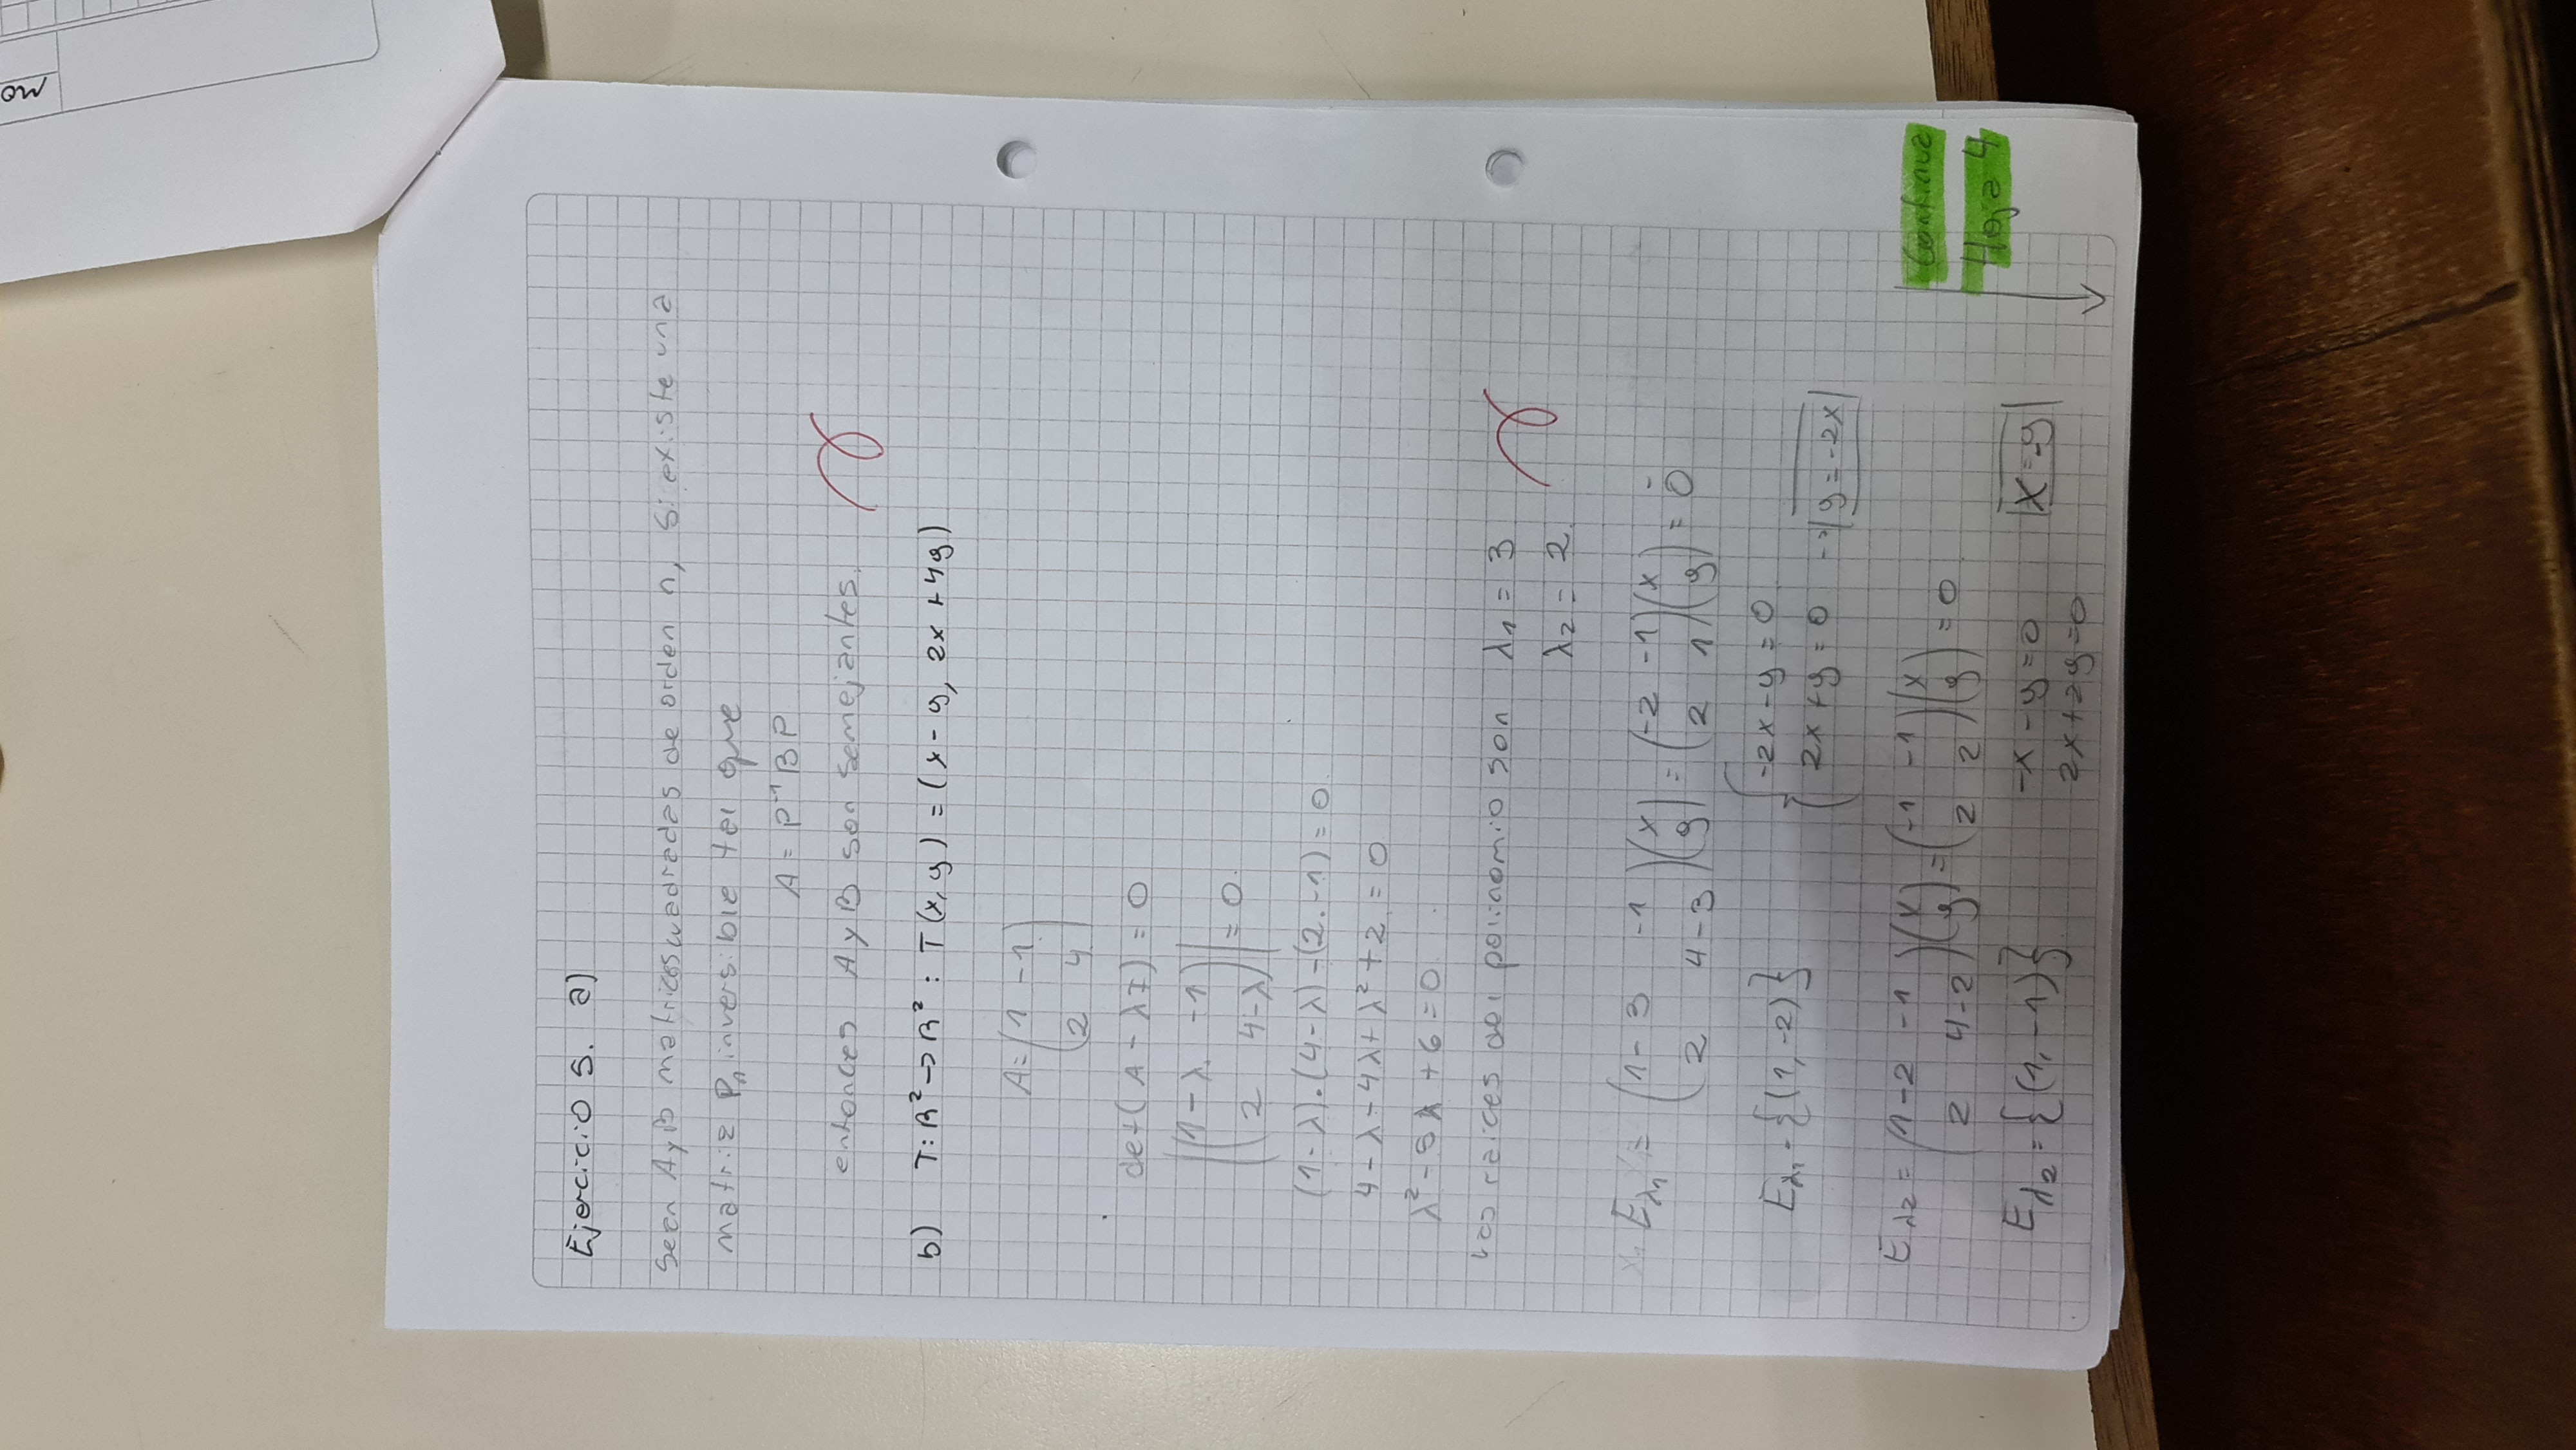 MO
Ejercicio 5. a)
Sean A y B matrices cuadradas de orden n, Si existe una
matriz Pₙ inversible tal que
A = P⁻¹ B P
entonces A y B son semejantes.
b) T: R² → R² : T(x, y) = (x - y, 2x + 4y)
A = (1 -1
2 4)
det(A - λI) = 0
|(1-λ -1
2 4-λ)| = 0.
(1-λ).(4-λ) - (2.-1) = 0
4 - λ - 4λ + λ² + 2 = 0
λ² - 5λ + 6 = 0
Las raices del polinomio son λ₁ = 3
λ₂ = 2
Eλ₁ = (1-3 -1 (x = (-2 -1 (x = 0̄
2 4-3) y) 2 1) y)
Eλ₁ = {(1, -2)} { -2x - y = 0
2x + y = 0 → |y = -2x|
Eλ₂ = (1-2 -1 (x = (-1 -1 (x = 0
2 4-2) y) 2 2) y)
Continua
Hoja 4
Eλ₂ = {(1, -1)} -x - y = 0 |x = -y|
2x + 2y = 0